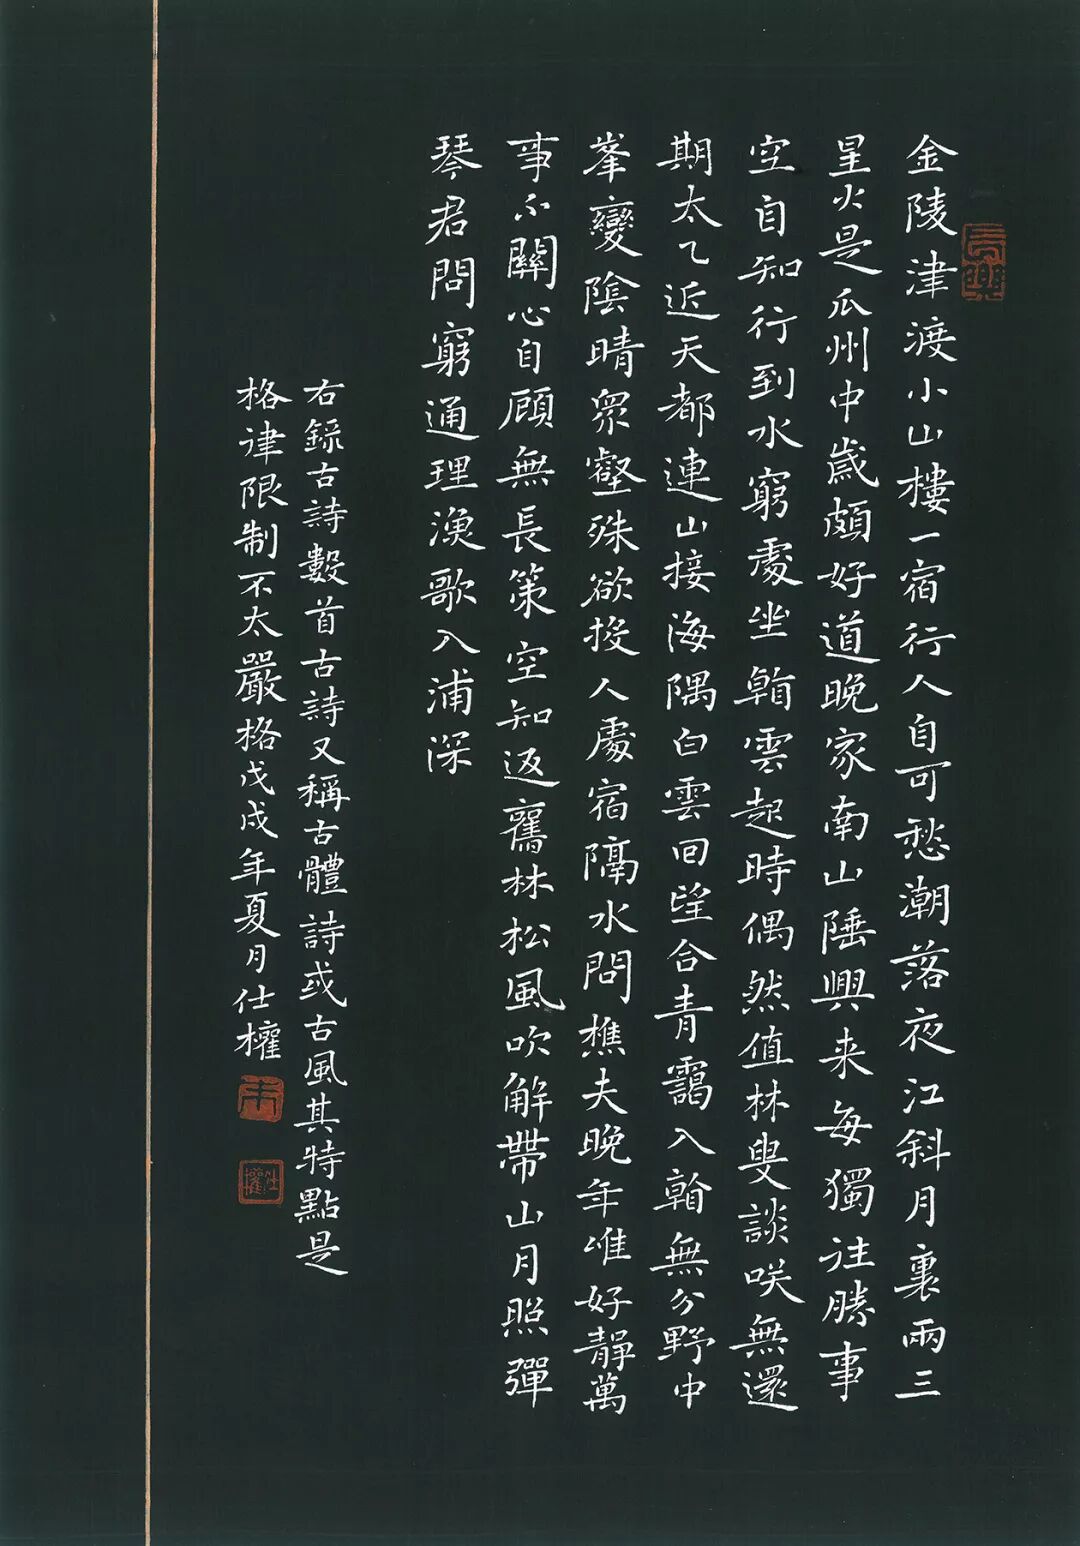 金陵津渡小山樓一宿行人自可愁潮落夜江斜月裏兩三
星火是瓜州中歲頗好道晚家南山陲興来每獨往勝事
空自知行到水窮處坐看雲起時偶然值林叟談咲無還
期太乙近天都連山接海隅白雲回望合青靄入看無分野中
峯變陰晴衆壑殊欲投人處宿隔水問樵夫晚年唯好靜萬
事不關心自顧無長策空知返舊林松風吹解帶山月照彈
琴君問窮通理漁歌入浦深
右錄古詩數首古詩又稱古體詩或古風其特點是
格律限制不太嚴格戊戌年夏月仕權
仕權